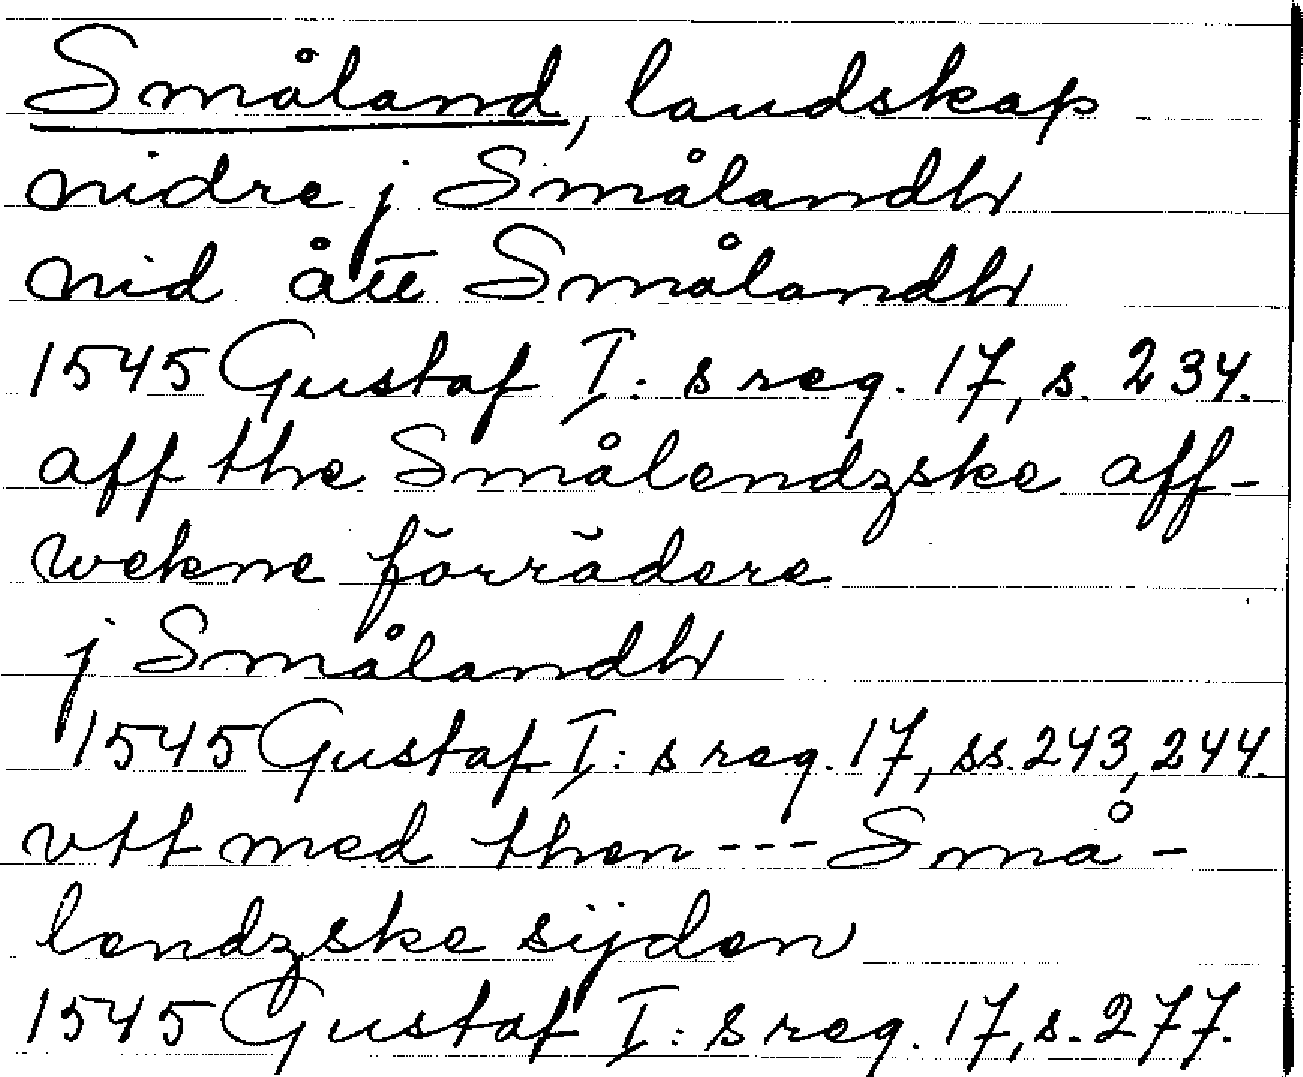 Småland, landskap
nidre j Smålandh
nid ått Smålandh
1545 Gustaf I:s reg. 17, s. 234.
aff the Smålendzske aff-
wekne förrädere
j Smålandh
1545 Gustaf I:s reg. 17, ss. 243, 244.
vtt med then --- Små-
lendzske sijden
1545 Gustaf I:s reg. 17, s. 277.